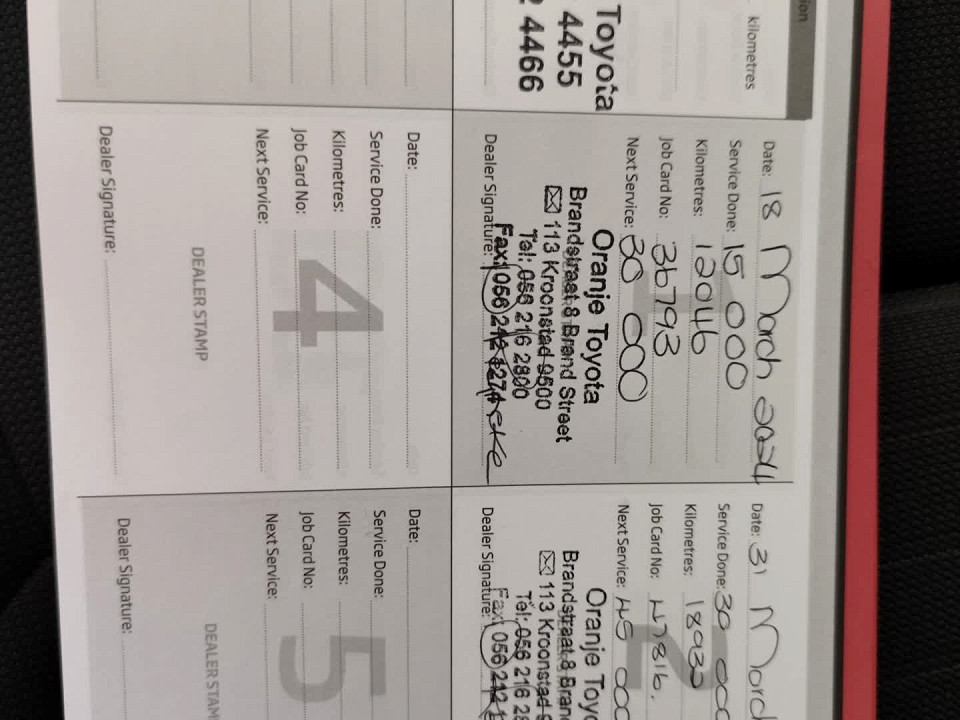 ion
kilometres
Toyota
4455
2 4466
Date: 18 March 2024
Service Done: 15 000
Kilometres: 12046
Job Card No: 36793
Next Service: 30 000
Oranje Toyota
Brandstraat 8 Brand Street
✉ 113 Kroonstad 9500
Tel: 056 216 2800
Fax: 056 212 1274
Dealer Signature:
1
Date: 31 March
Service Done: 30 000
Kilometres: 18933
Job Card No: 47816.
Next Service: 45 000
2
Oranje Toyo
Brandstraat 8 Bran
✉ 113 Kroonstad 9
Tel: 056 216 28
Fax: 056 212 1
Dealer Signature:
Date:
Service Done:
Kilometres:
Job Card No:
Next Service:
4
DEALER STAMP
Dealer Signature:
Date:
Service Done:
Kilometres:
Job Card No:
Next Service:
5
DEALER STAM
Dealer Signature: